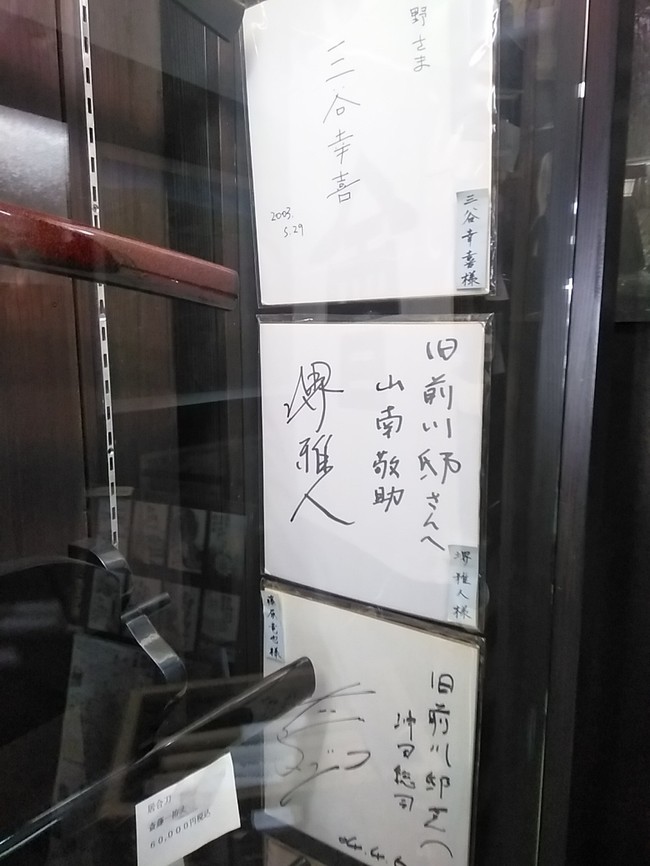 野さま
三谷幸喜
2003.
5.29
三谷幸喜様
旧前川邸さんへ
山南敬助
堺雅人
堺雅人様
旧前川邸
沖田総司
居合刀
60,000円税込